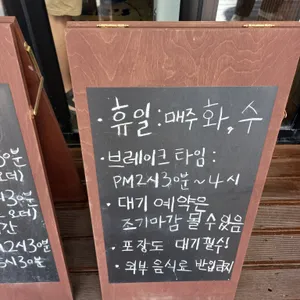 · 휴일 : 매주 화, 수
· 브레이크 타임 :
PM2시30분 ~ 4시
· 대기 예약은
조기마감 될 수 있음
· 포장도 대기필수!
· 외부 음식물 반입금지
30분
30분
2시30분
시30분